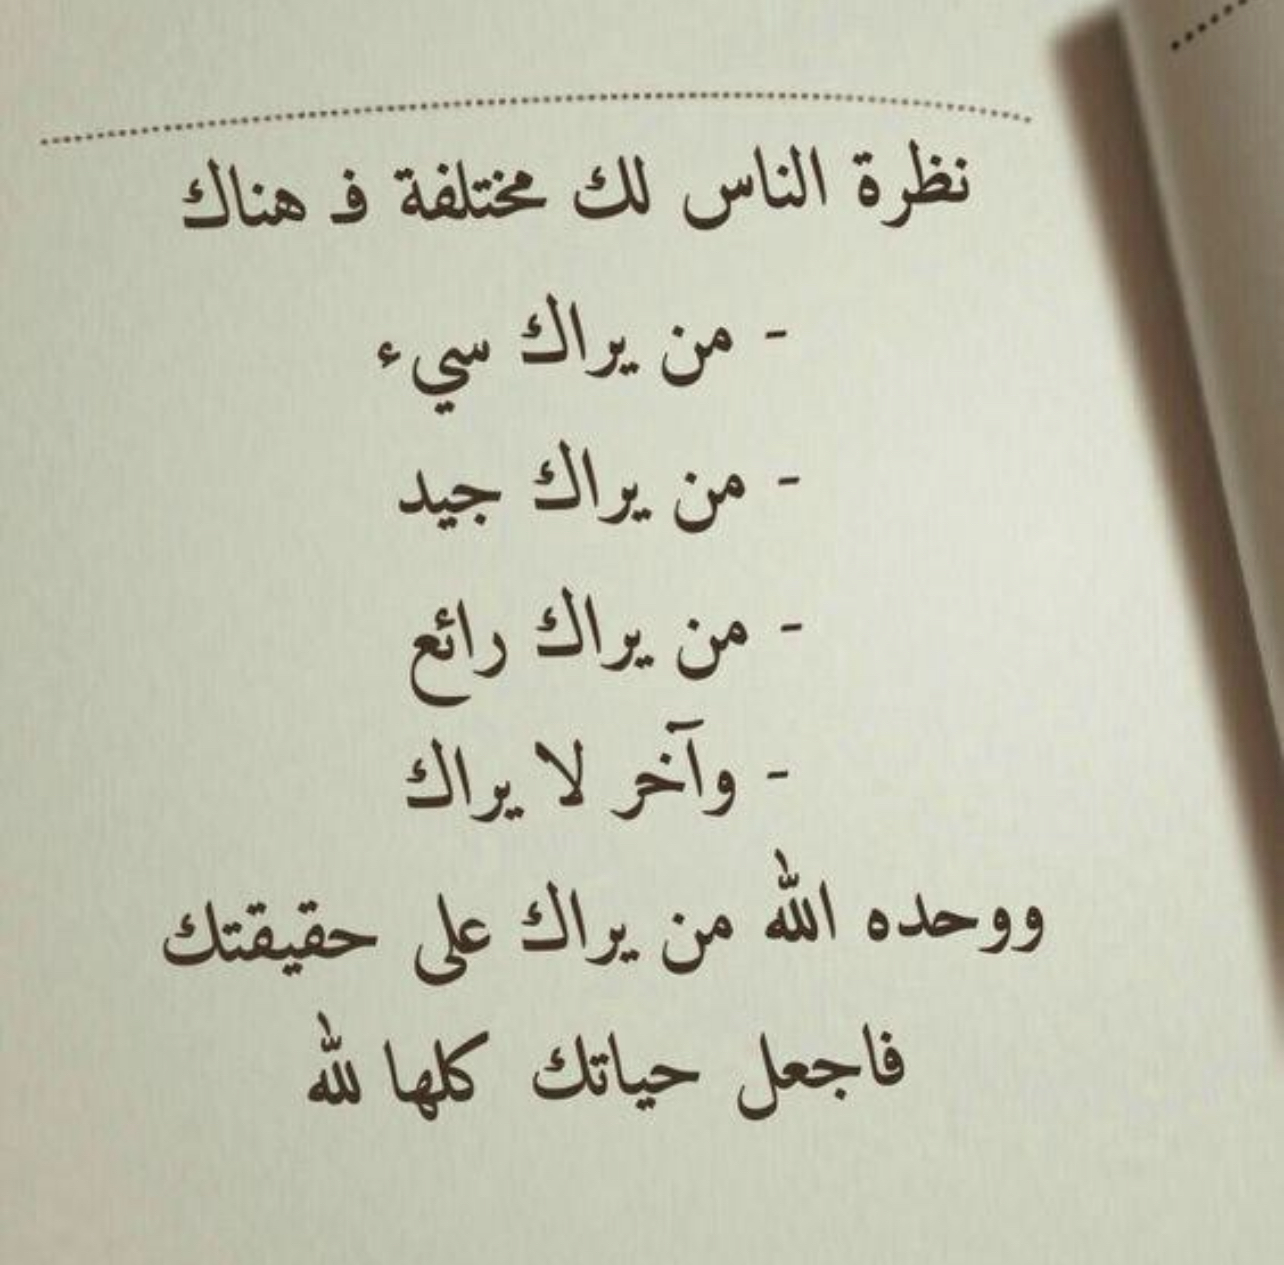 نظرة الناس لك مختلفة فـ هناك
- من يراك سيء
- من يراك جيد
- من يراك رائع
- وآخر لا يراك
ووحده الله من يراك على حقيقتك
فاجعل حياتك كلها لله